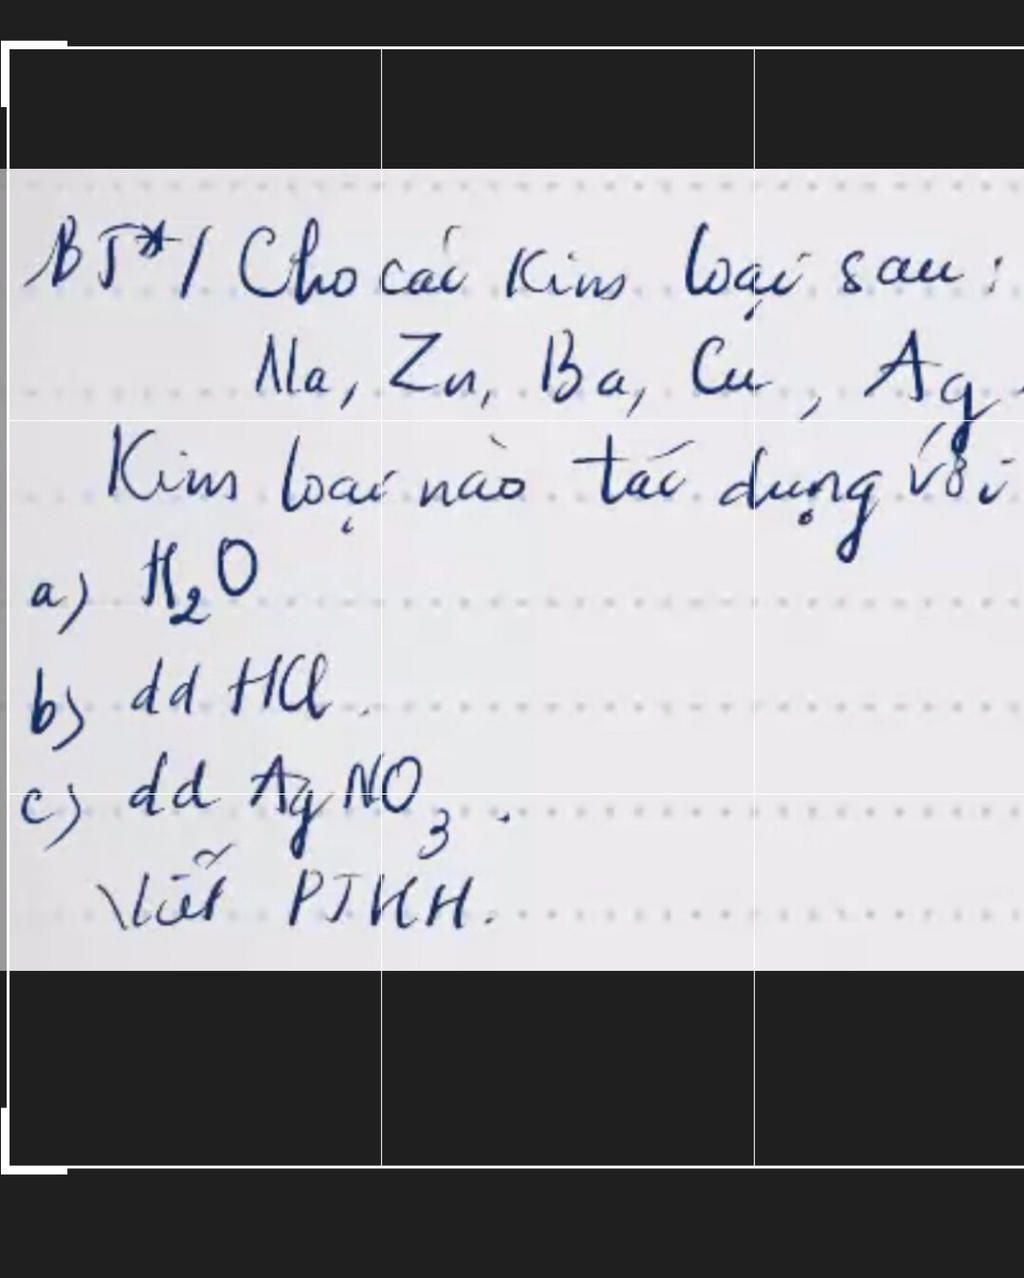 BT*/ Cho các kim loại sau:
Na, Zn, Ba, Cu, Ag.
Kim loại nào tác dụng với
a) H₂O
b) dd HCl.
c) dd AgNO₃.
Viết PTHH.